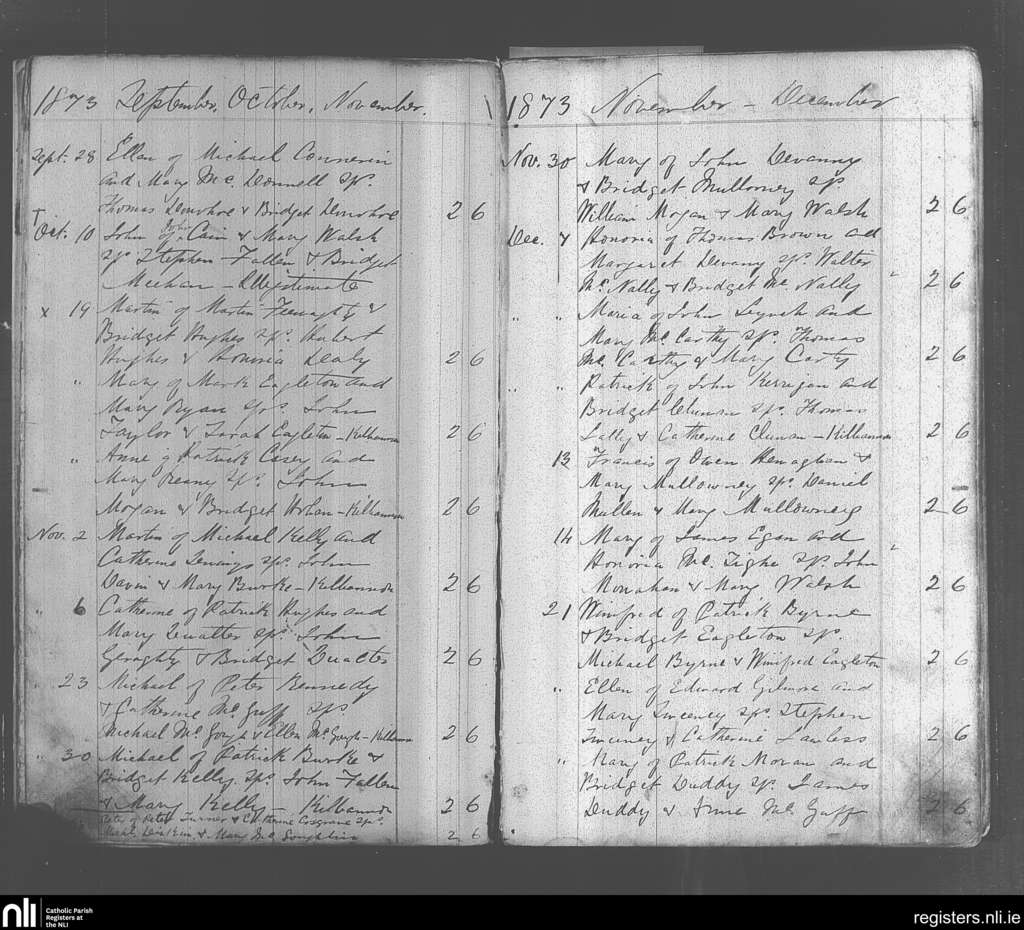 1873 September, October, November.
Sept. 28 Ellen of Michael
and Mary Mc. Donnell Sps.
Thomas Donohoe & Bridget Donohoe 2 6
Oct. 10 John of John Cain & Mary Walsh
Sps Stephen Fallen & Bridget
Meehan - Illegitimate
x 19 Martin of Martin &
Bridget Hughes Sps. Hubert
Hughes & Honoria Healy 2 6
" Mary of Mark Eagleton and
Mary Ryan Sps. John
Taylor & Sarah Eagleton - Kilbannon 2 6
" Anne of Patrick Casey and
Mary Sps. John
Mogan & Bridget - Kilbannon 2 6
Nov. 2 Martin of Michael Kelly and
Catherine Jennings Sps. John
Davin & Mary Burke - Kilbannon 2 6
" 6 Catherine of Patrick Hughes and
Mary Sps. John
Geraghty & Bridget 2 6
" 23 Michael of Peter Kennedy
& Catherine Mc. Guff Sps
Michael Mc Gough & Ellen Mc Gough - Kilbannon 2 6
" 30 Michael of Patrick Burke &
Bridget Kelly Sps. John Fallen
& Mary Kelly - Kilbannon 2 6
Peter of Peter Turner & Catherine Cosgrave Sps.
& Mary Mc Loughlin 2 6
1873 November - December
Nov. 30 Mary of John Devanny
& Bridget Mullowney Sps
William Mogan & Mary Walsh 2 6
Dec. 7 Honoria of Thomas Brown and
Margaret Devany Sps. Walter
Mc. Nally & Bridget Mc. Nally 2 6
" " Maria of John Lynch and
Mary Mc. Carthy Sps. Thomas
Mc. Carthy & Mary Carty 2 6
" " Patrick of John Kerrigan and
Bridget Clunan Sps. Thomas
Lally & Catherine Clunan - Kilbannon 2 6
13 Francis of Owen Henaghan &
Mary Mullowney Sps. Daniel
Mullen & Mary Mullowney 2 6
14 Mary of James Egan and
Honoria Mc. Tighe Sps. John
Monahan & Mary Walsh 2 6
21 Winifred of Patrick Byrne
& Bridget Eagleton Sps.
Michael Byrne & Winifred Eagleton 2 6
" Ellen of Edward Gilmore and
Mary Sweeney Sps. Stephen
Sweeney & Catherine Lawless 2 6
" Mary of Patrick Moran and
Bridget Duddy Sps. James
Duddy & Anne Mc. Guff 2 6
nli Catholic Parish
Registers at
the NLI
registers.nli.ie